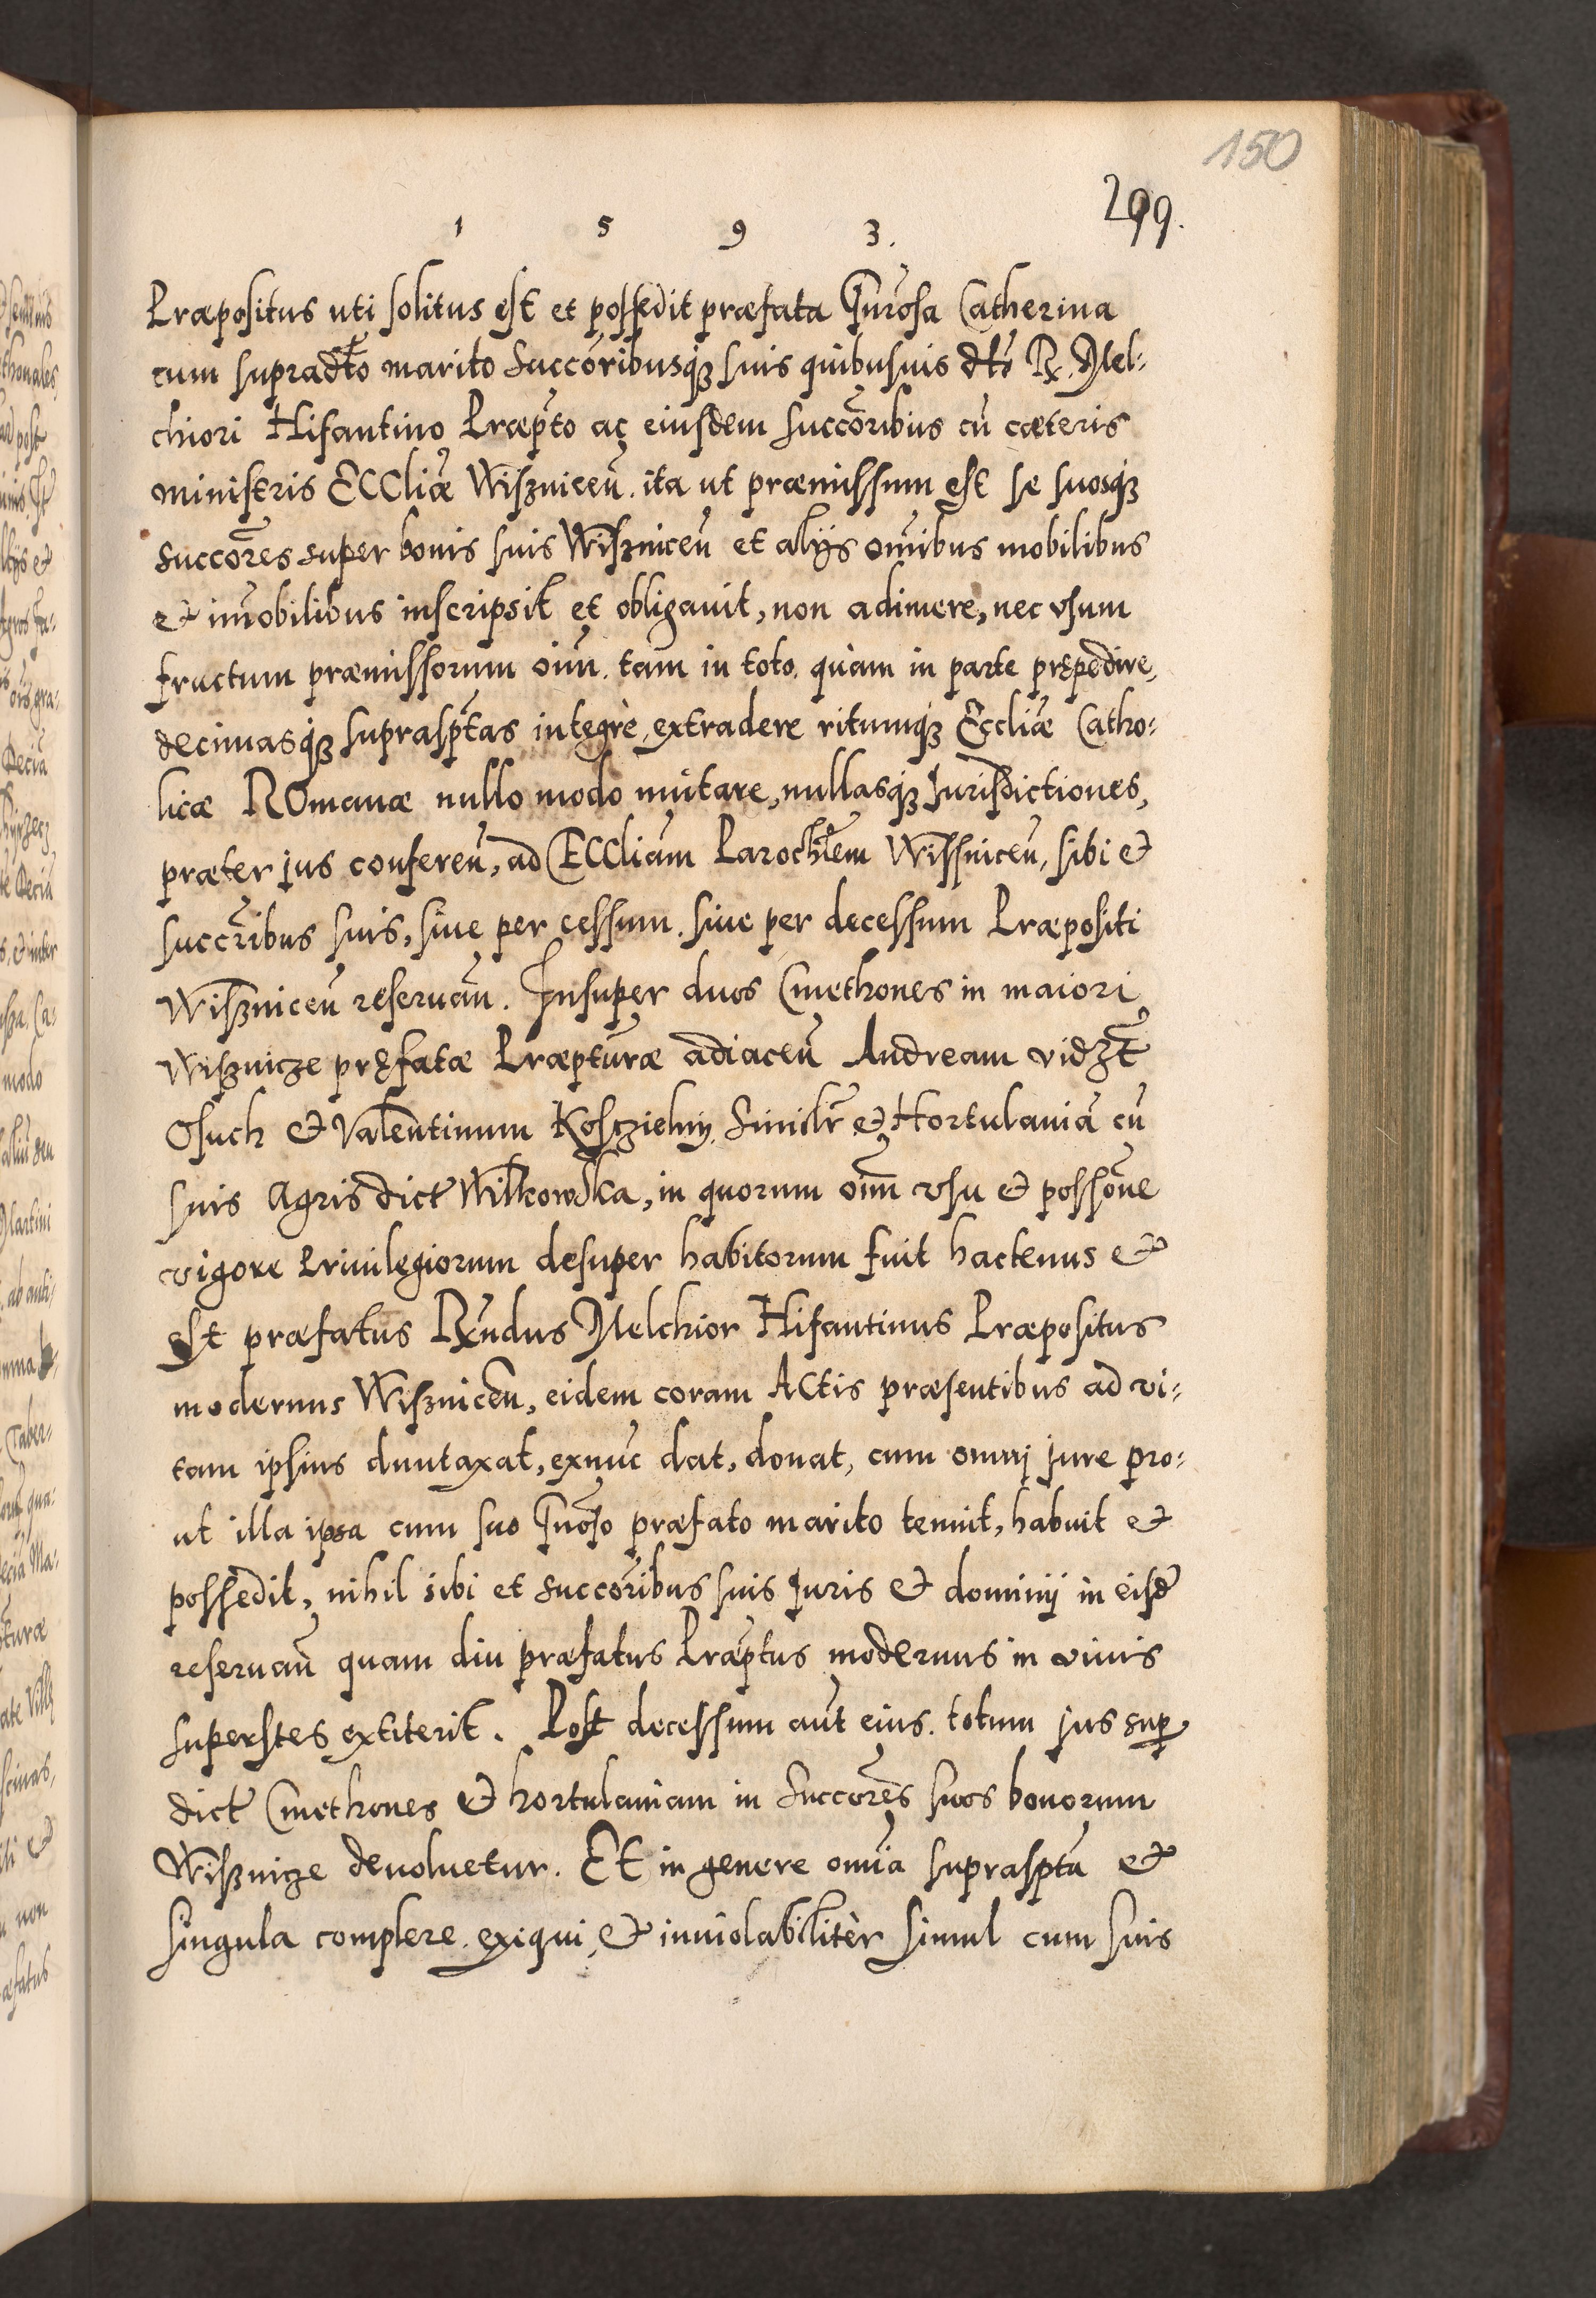 150
299.
1 5 9 3.
Præpositus uti solitus est et possedit præfata Gnrosa Catherina
cum supradto marito Succoribusq; suis quibusuis dto R. Mel-
chiori Hifantino Præpto ac eiusdem succoribus cũ cæteris
ministris Eccliæ Wiszniceñ. ita ut præmissum est se suosq;
succores super bonis suis Wiszniceñ et alijs omibus mobilibus
et imobilibus inscripsit et obligauit, non adimere, nec vsum
fructum præmissorum oiũ. tam in toto. quàm in parte prępedire,
decimasq; suprasptas integrè, extradere ritumq; Eccliæ Catho-
licæ Romanæ nullo modo mutare, nullasq; Jurisdictiones,
præter jus confereñ, ad Eccliam Parochlem Wissniceñ, sibi et
succribus suis, siue per cessum. siue per decessum Præpositi
Wiszniceñ reseruañ. Insuper duos Cmethones in maiori
Wisznicze pręfatæ Præpturæ adiaceñ Andream vidzt
Osuch et Valentinum Kosczielny. Similr et Hortulaniã cũ
suis Agris dict Wilkowska, in quorum oim vsu et possone
vigore Priuilegiorum desuper habitorum fuit hactenus et
est præfatus Rndus Melchior Hifantinus Præpositus
modernus Wisznicen, eidem coram Actis præsentibus ad vi-
tam ipsius duntaxat, exnuc dat, donat, cum omnj jure pro-
ut illa ipsa cum suo Gnoso præfato marito tenuit, habuit et
possedit, nihil sibi et succoribus suis Juris et dominij in eisd
reseruañ quam diu præfatus Præptus modernus in viuis
superstes extiterit. Post decessum aut eius. totum jus sup
dict Cmethones et hortulaniam in Succores suos bonorum
Wisznicze deuoluetur. Et in genere omia supraspta et
singula complere. exiqui, et inuiolabilitèr simul cum suis